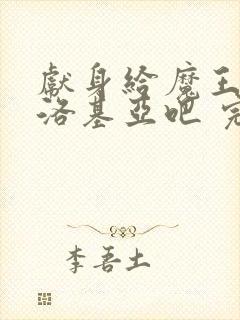 獻身給魔王
洛基亞吧 完
李吾土